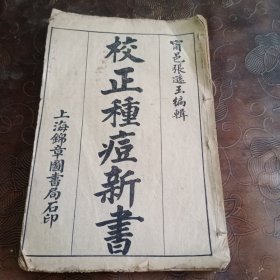 甯邑張遜玉編輯
校正種痘新書
上海錦章圖書局石印